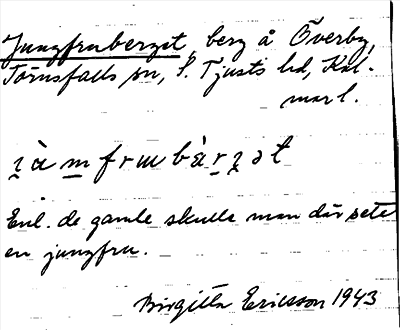 Jungfruberget, berg å Överby,
Törnsfalls sn, S. Tjusts hd, Kal-
mar l.
Enl. de gamle skulle man där sett
en jungfru.
Birgitta Ericsson 1943